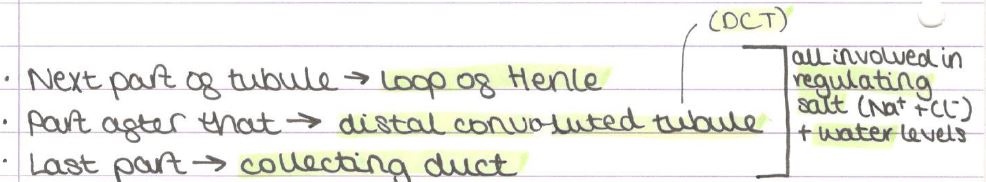 (DCT)
· Next part of tubule → Loop of Henle
· Part after that → distal convoluted tubule
· Last part → collecting duct
all involved in
regulating
salt (Na⁺ + Cl⁻)
+ water levels